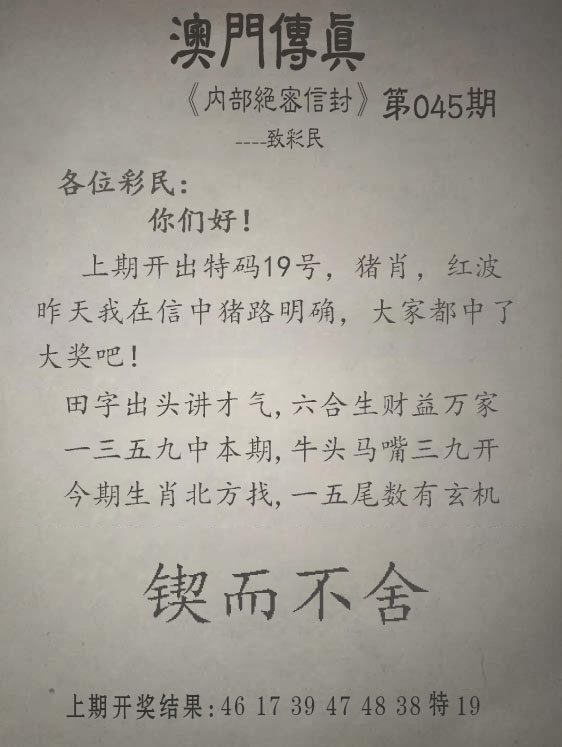 澳門傳眞
《内部絕密信封》第045期
----致彩民
各位彩民:
你们好!
上期开出特码19号，猪肖，红波
昨天我在信中猪路明确，大家都中了
大奖吧!
田字出头讲才气,六合生财益万家
一三五九中本期,牛头马嘴三九开
今期生肖北方找,一五尾数有玄机
锲而不舍
上期开奖结果:46 17 39 47 48 38 特 19